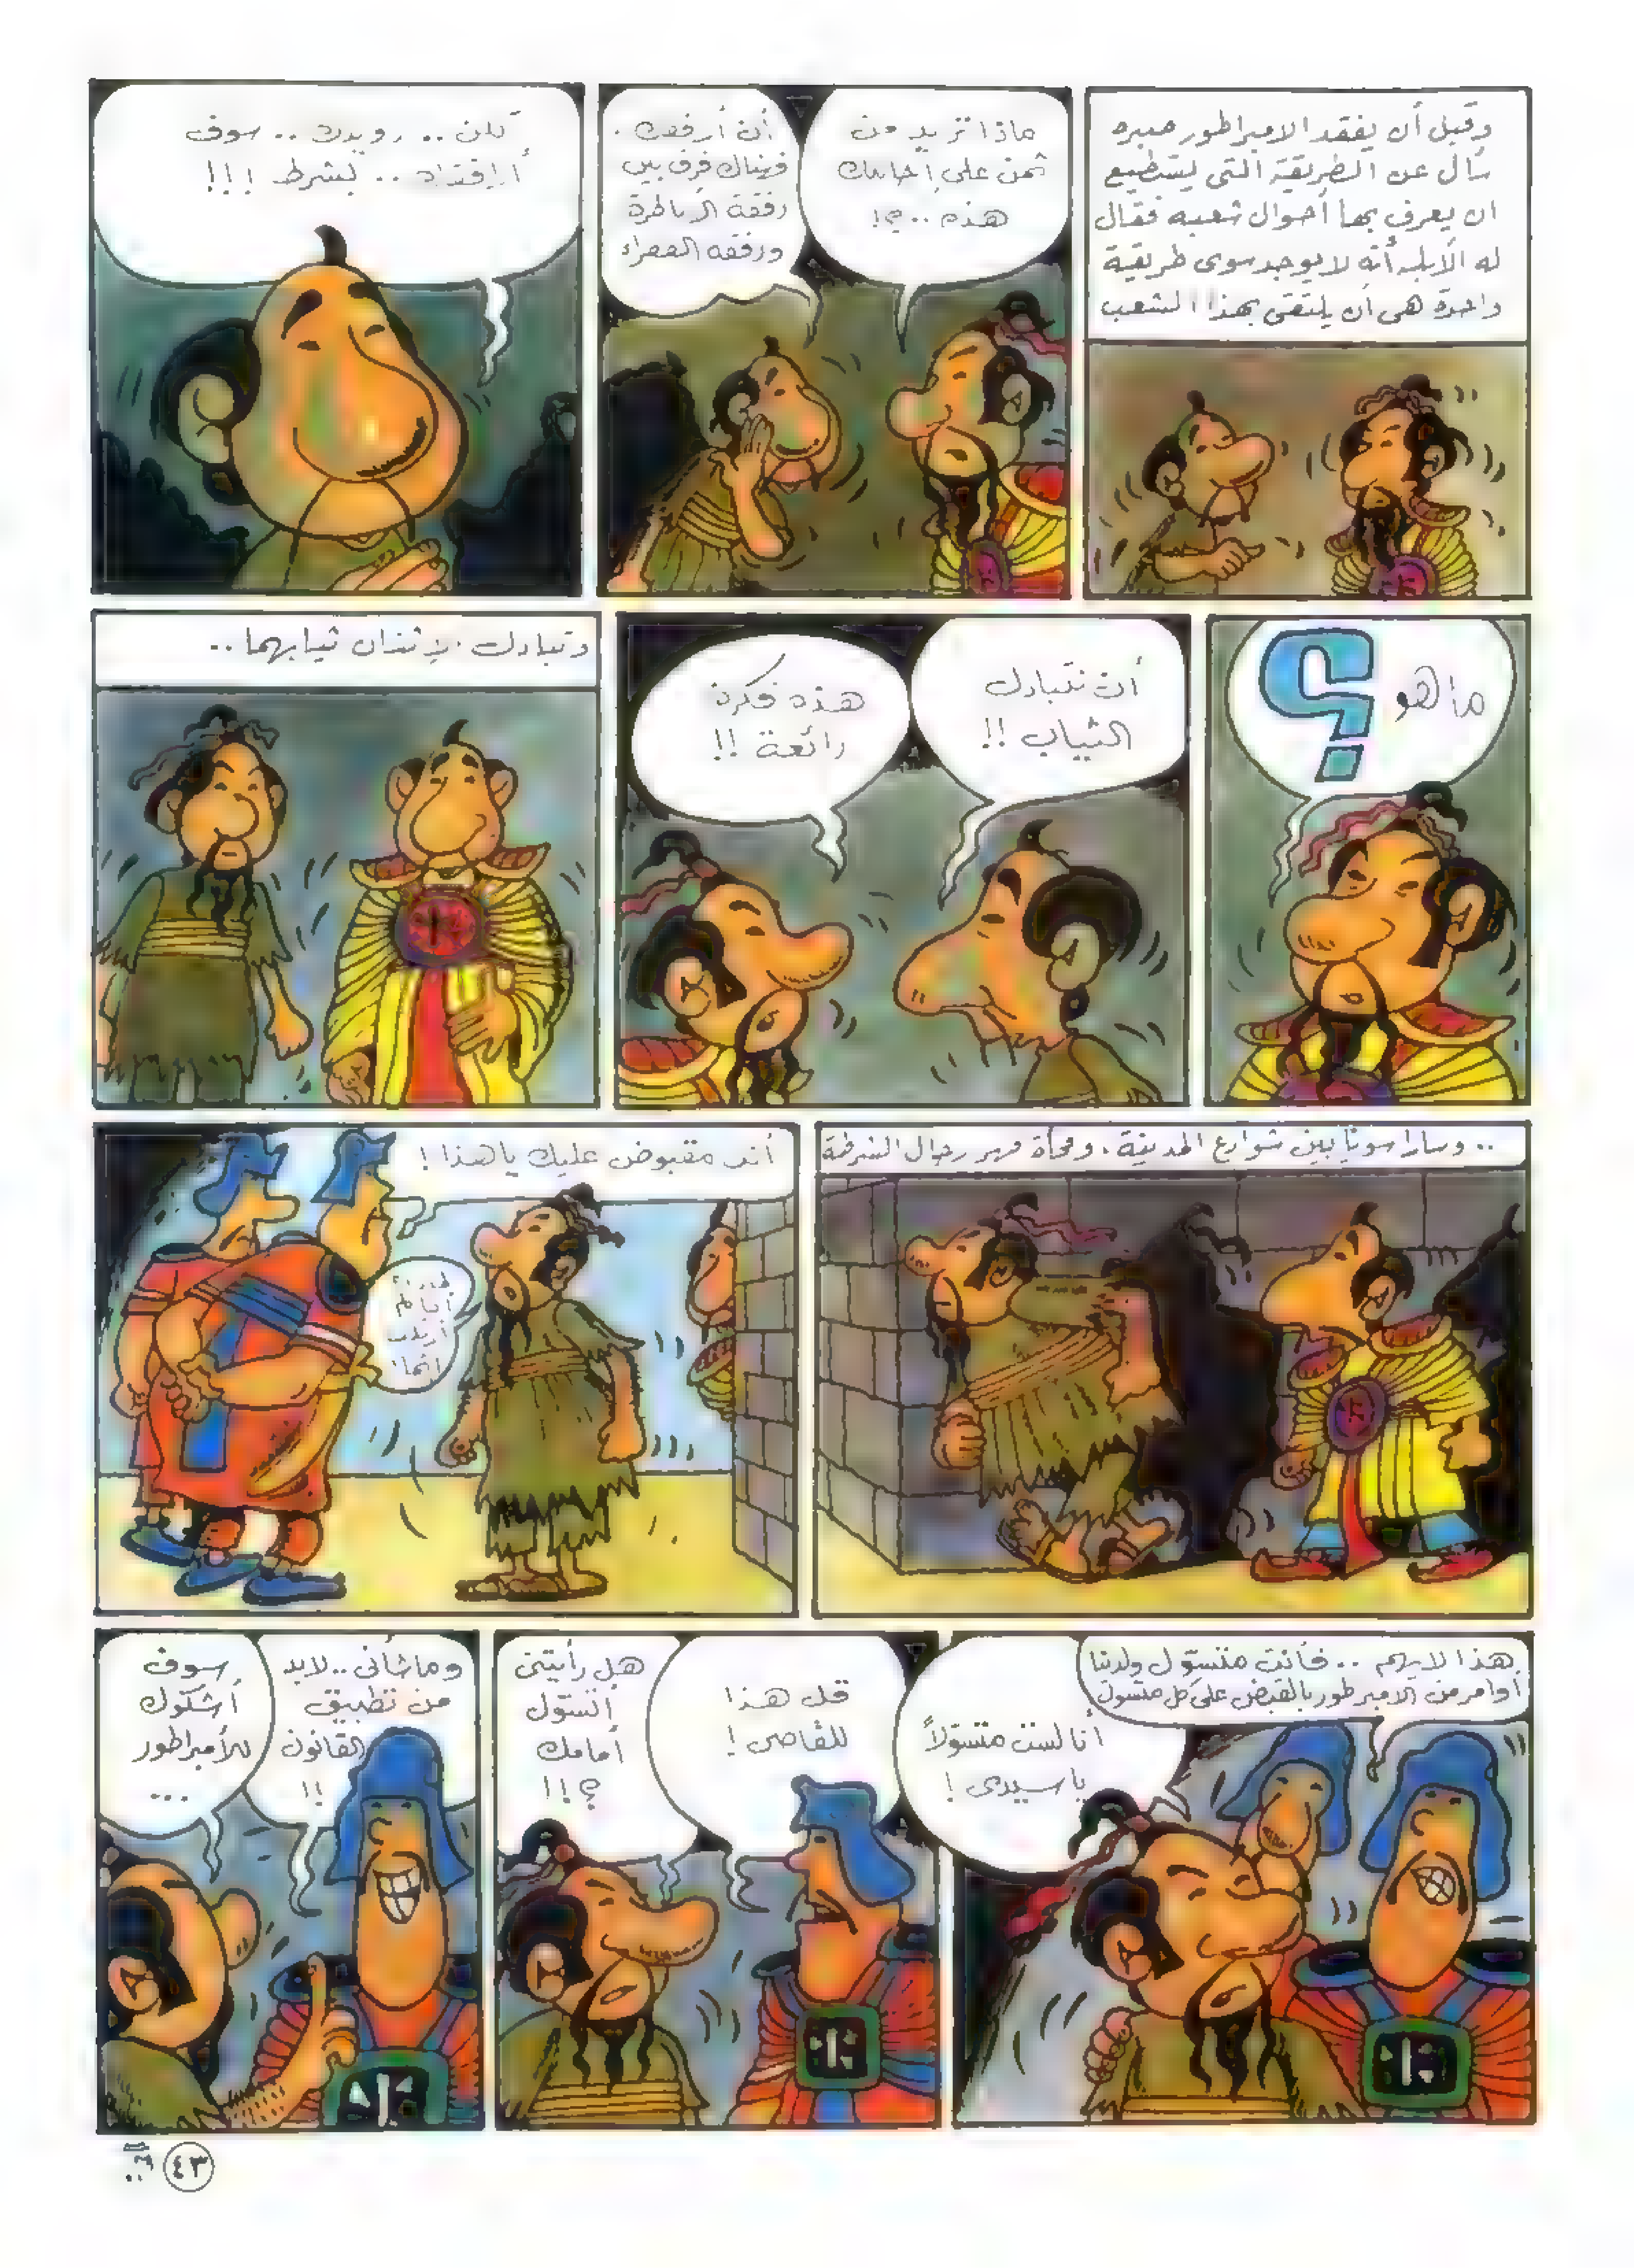 وقبل أن يفقد الامبراطور صبره
سأل عن الطريقة التى يستطيع
ان يعرف بها أحوال شعبه فقال
له الأبله أنه لا يوجد سوى طريقة
واحدة هى أن يلتقى بهذا الشعب
ماذا تريد من
ثمن على إجابتك
هذه ..؟!
أن أرفقك .
فهناك فرق بين
رفقة الأباطرة
ورفقة الفقراء
لكن .. رويدك .. سوف
أرافقك .. بشرط !!!
ما هو ؟
أن نتبادل
الثياب !!
هذه فكرة
رائعة !!
وتبادل الإثنان ثيابهما ..
.. وسارا سويًا بين شوارع المدينة ، وفجأة ظهر رجال الشرطة
أنت مقبوض عليك يا هذا !
لماذا
أنا لم
أرتكب
إثما !
هذا لا يهم .. فأنت متسوّل ولدينا
أوامر من الامبراطور بالقبض على كل متسول
أنا لست متسولاً
يا سيدى !
قل هذا
للقاضى !
هل رأيتنى
أتسول
أمامك
؟!!
وما شأنى .. لابد
من تطبيق
القانون
!!
سوف
أشكوك
للأمبراطور
...
٤٣